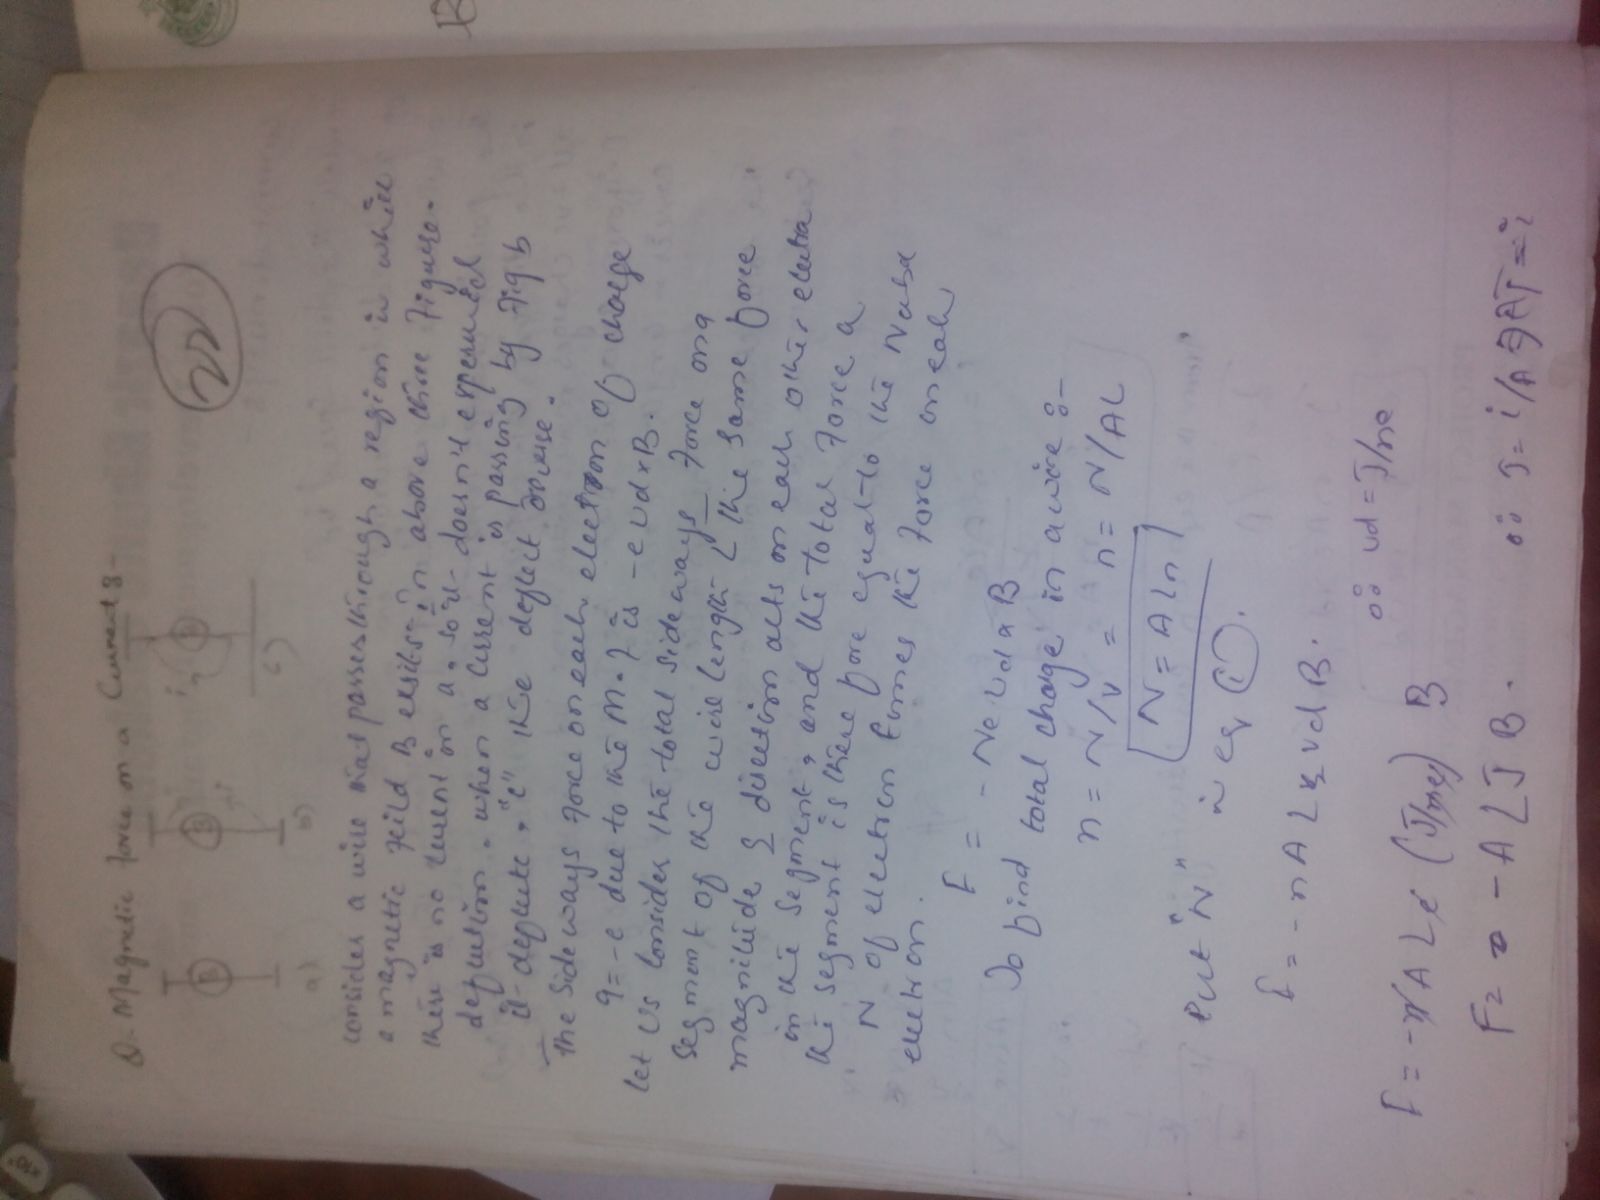 22
Q. Magnetic force on a Current :-
B
B
i
i
B
a)
b)
c)
consider a wire that passes through a region in which
a magnetic feild B exsits in above three Figure.
there is no current in a. so it doesn't experienced
defletion. when a current is passing by Fig b
it deflect, "c" the deflect
the sideways force on each electron of charge
q = -e due to the M.F is -e vd x B.
let us consider the total sideways Force on a
segment of the wire length L the same force
magnitude & direction acts on each other electron
in the segment, and the total Force a
the segment is there fore equal to the N
N of electron times the Force on each
electron.
F = - Ne vd x B
To find total charge in a wire :-
n = N/V = n = N/AL
N = ALn
Put "N" in eq (i).
F = - nALe vd B.
∴ vd = J/ne
F = - nALe (J/ne) B
F = - ALJB.
∴ J = i/A ⇒ AJ = i